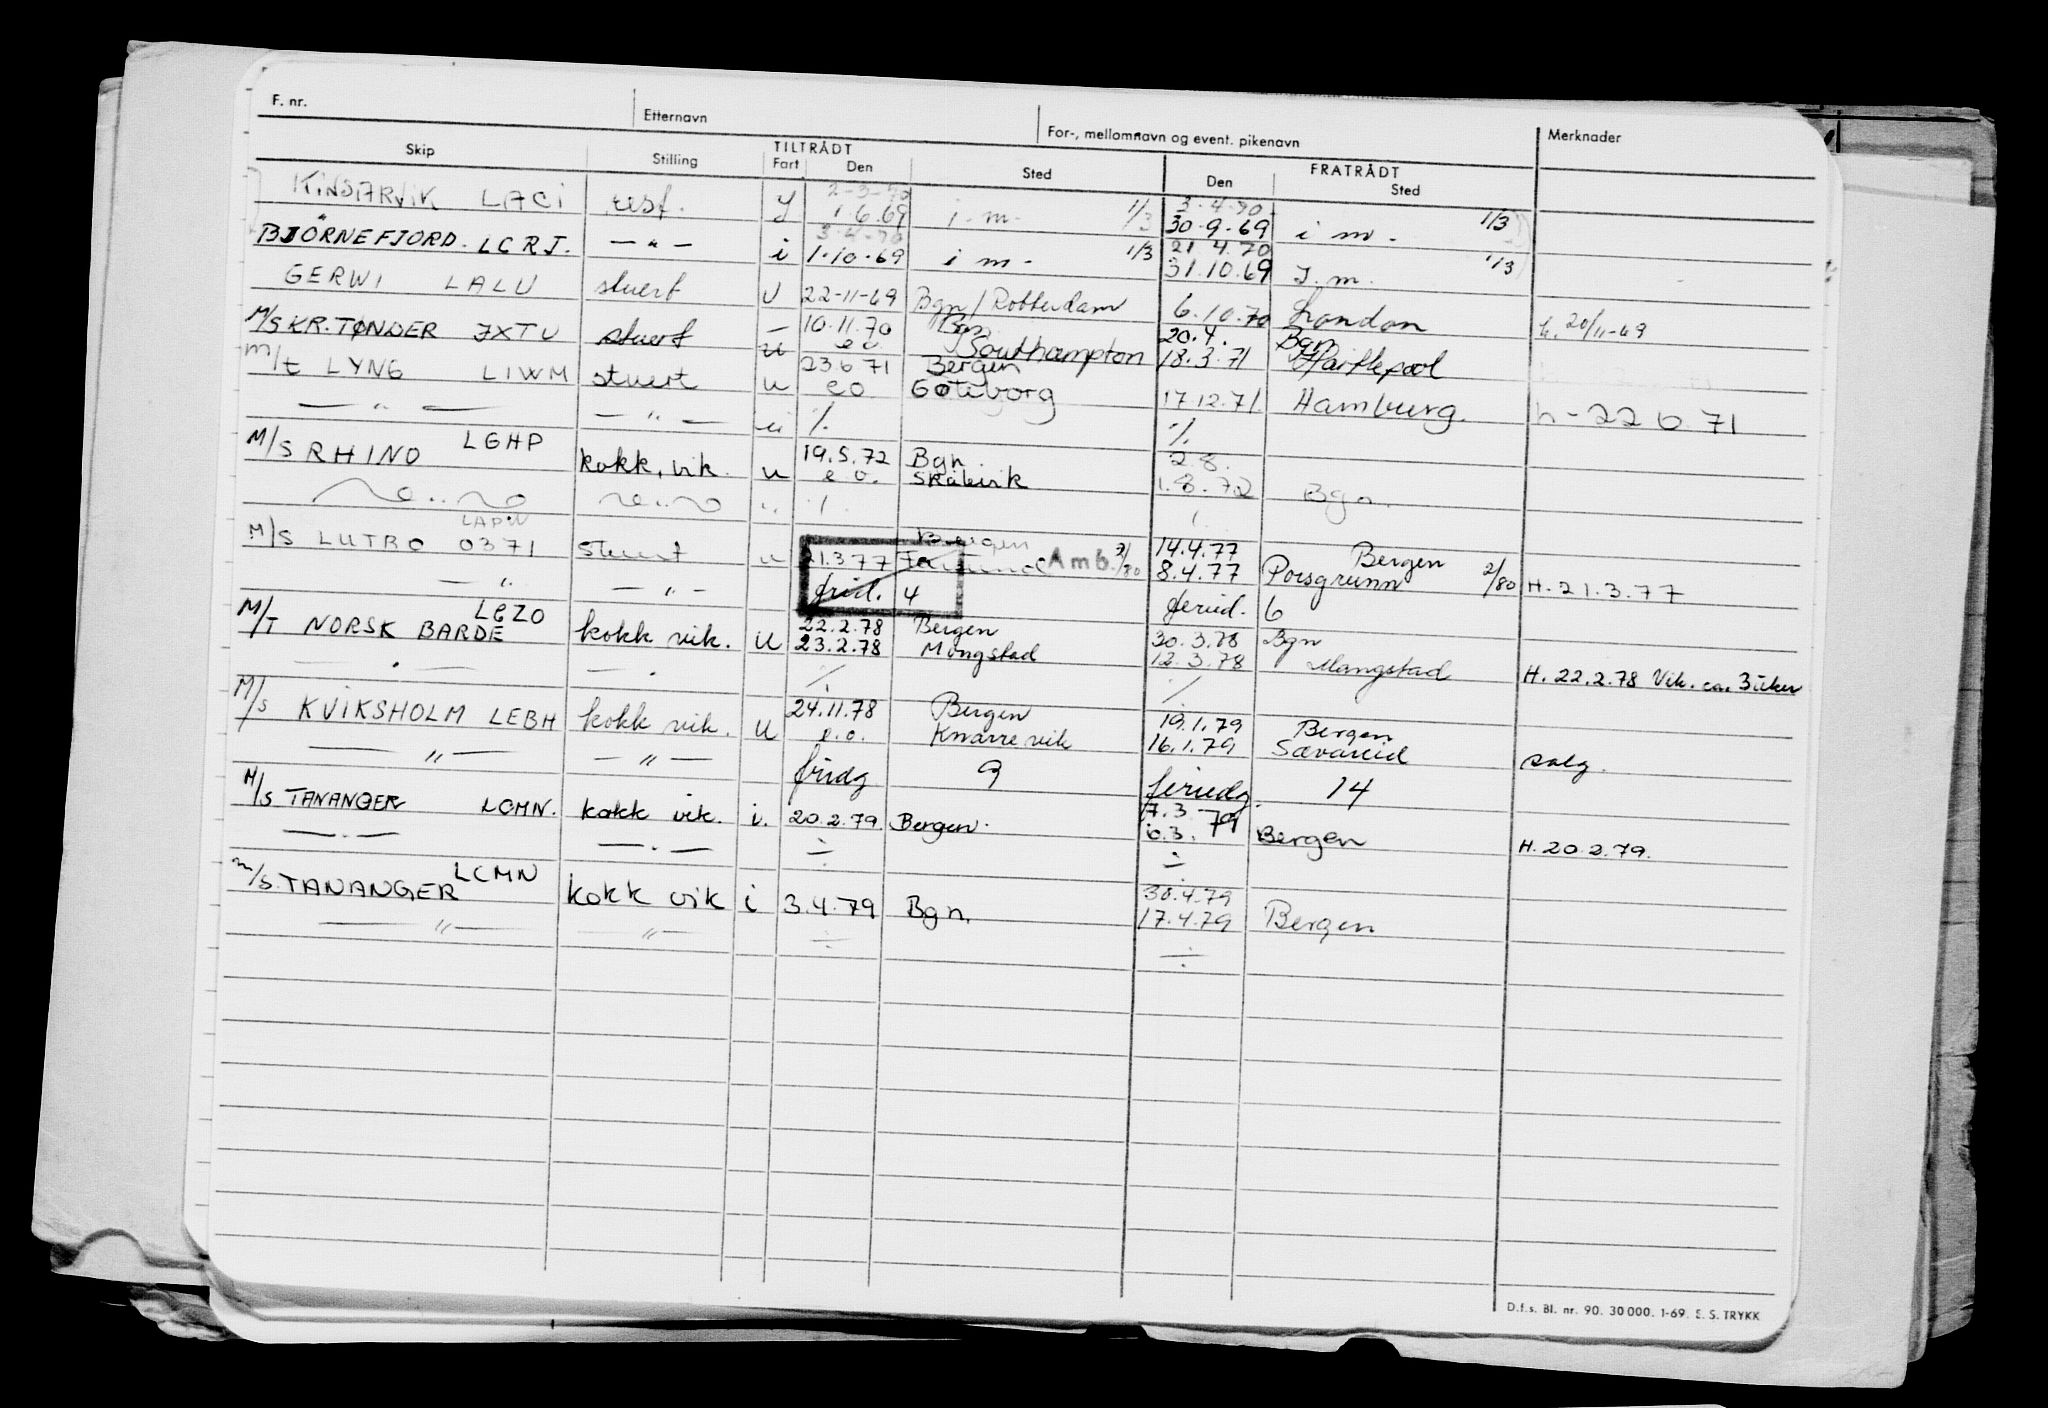 F. nr. Etternavn For-, mellomnavn og event. pikenavn Merknader
Skip Stilling TILTRÅDT Fart Den Sted FRATRÅDT Den Sted
2-3-70 3.4.70
KINSARVIK LACI rest. 1.6.69 i.m. 1/3 30.9.69 i m. 1/3
3.4.70 21.4.70
BJÖRNEFJORD. LCRJ. — " — i 1.10.69 i m. 1/3 31.10.69 I.m. 1/3
GERWI LALU stuert U 22-11-69 Bgn / Rotterdam 6.10.70 London h. 20/11-69
10.11.70 Bgn 20.4. Bgn
M/S KR. TØNDER JXTU stuert u e.o. Southampton 18.3.71 Hartlepool
23.6.71 Bergen
M/t LYNG LIWM stuert u e.o. Göteborg 17.12.71 Hamburg. h-22 6 71
— " — — " — u ./. ./.
19.5.72 Bgn 2.8.
M/S RHINO LGHP kokk, vik. u e.o. Skålevik 1.8.72 Bgn.
LAPW Bergen 14.4.77 Bergen
M/S LUTRO 0371 stuert u 21.3.77 Amb. 2/80 8.4.77 Porsgrunn 2/80 H. 21.3.77
— " — — " — frid. 4 feried. 6
LEZO 22.2.78 Bergen 30.3.78 Bgn
M/T NORSK BARDE kokk vik. U 23.2.78 Mongstad 12.3.78 Mongstad H. 22.2.78 Vik. ca. 3 uker
24.11.78 Bergen 19.1.79 Bergen
M/S KVIKSHOLM LEBH kokk vik. U e.o. Knarrevik 16.1.79 Sævareid salg.
— " — — " — fridg 9 feriedg. 14
7.3.79
M/S TANANGER LCMN. kokk vik. i. 20.2.79. Bergen. 6.3. Bergen H. 20.2.79.
— . — — . — ÷ ÷
LCMN 30.4.79
m/S. TANANGER kokk vik i 3.4.79 Bgn. 17.4.79 Bergen
— " — — " — ÷ ÷
D.f.s. Bl. nr. 90. 30 000. 1-69. E. S. TRYKK